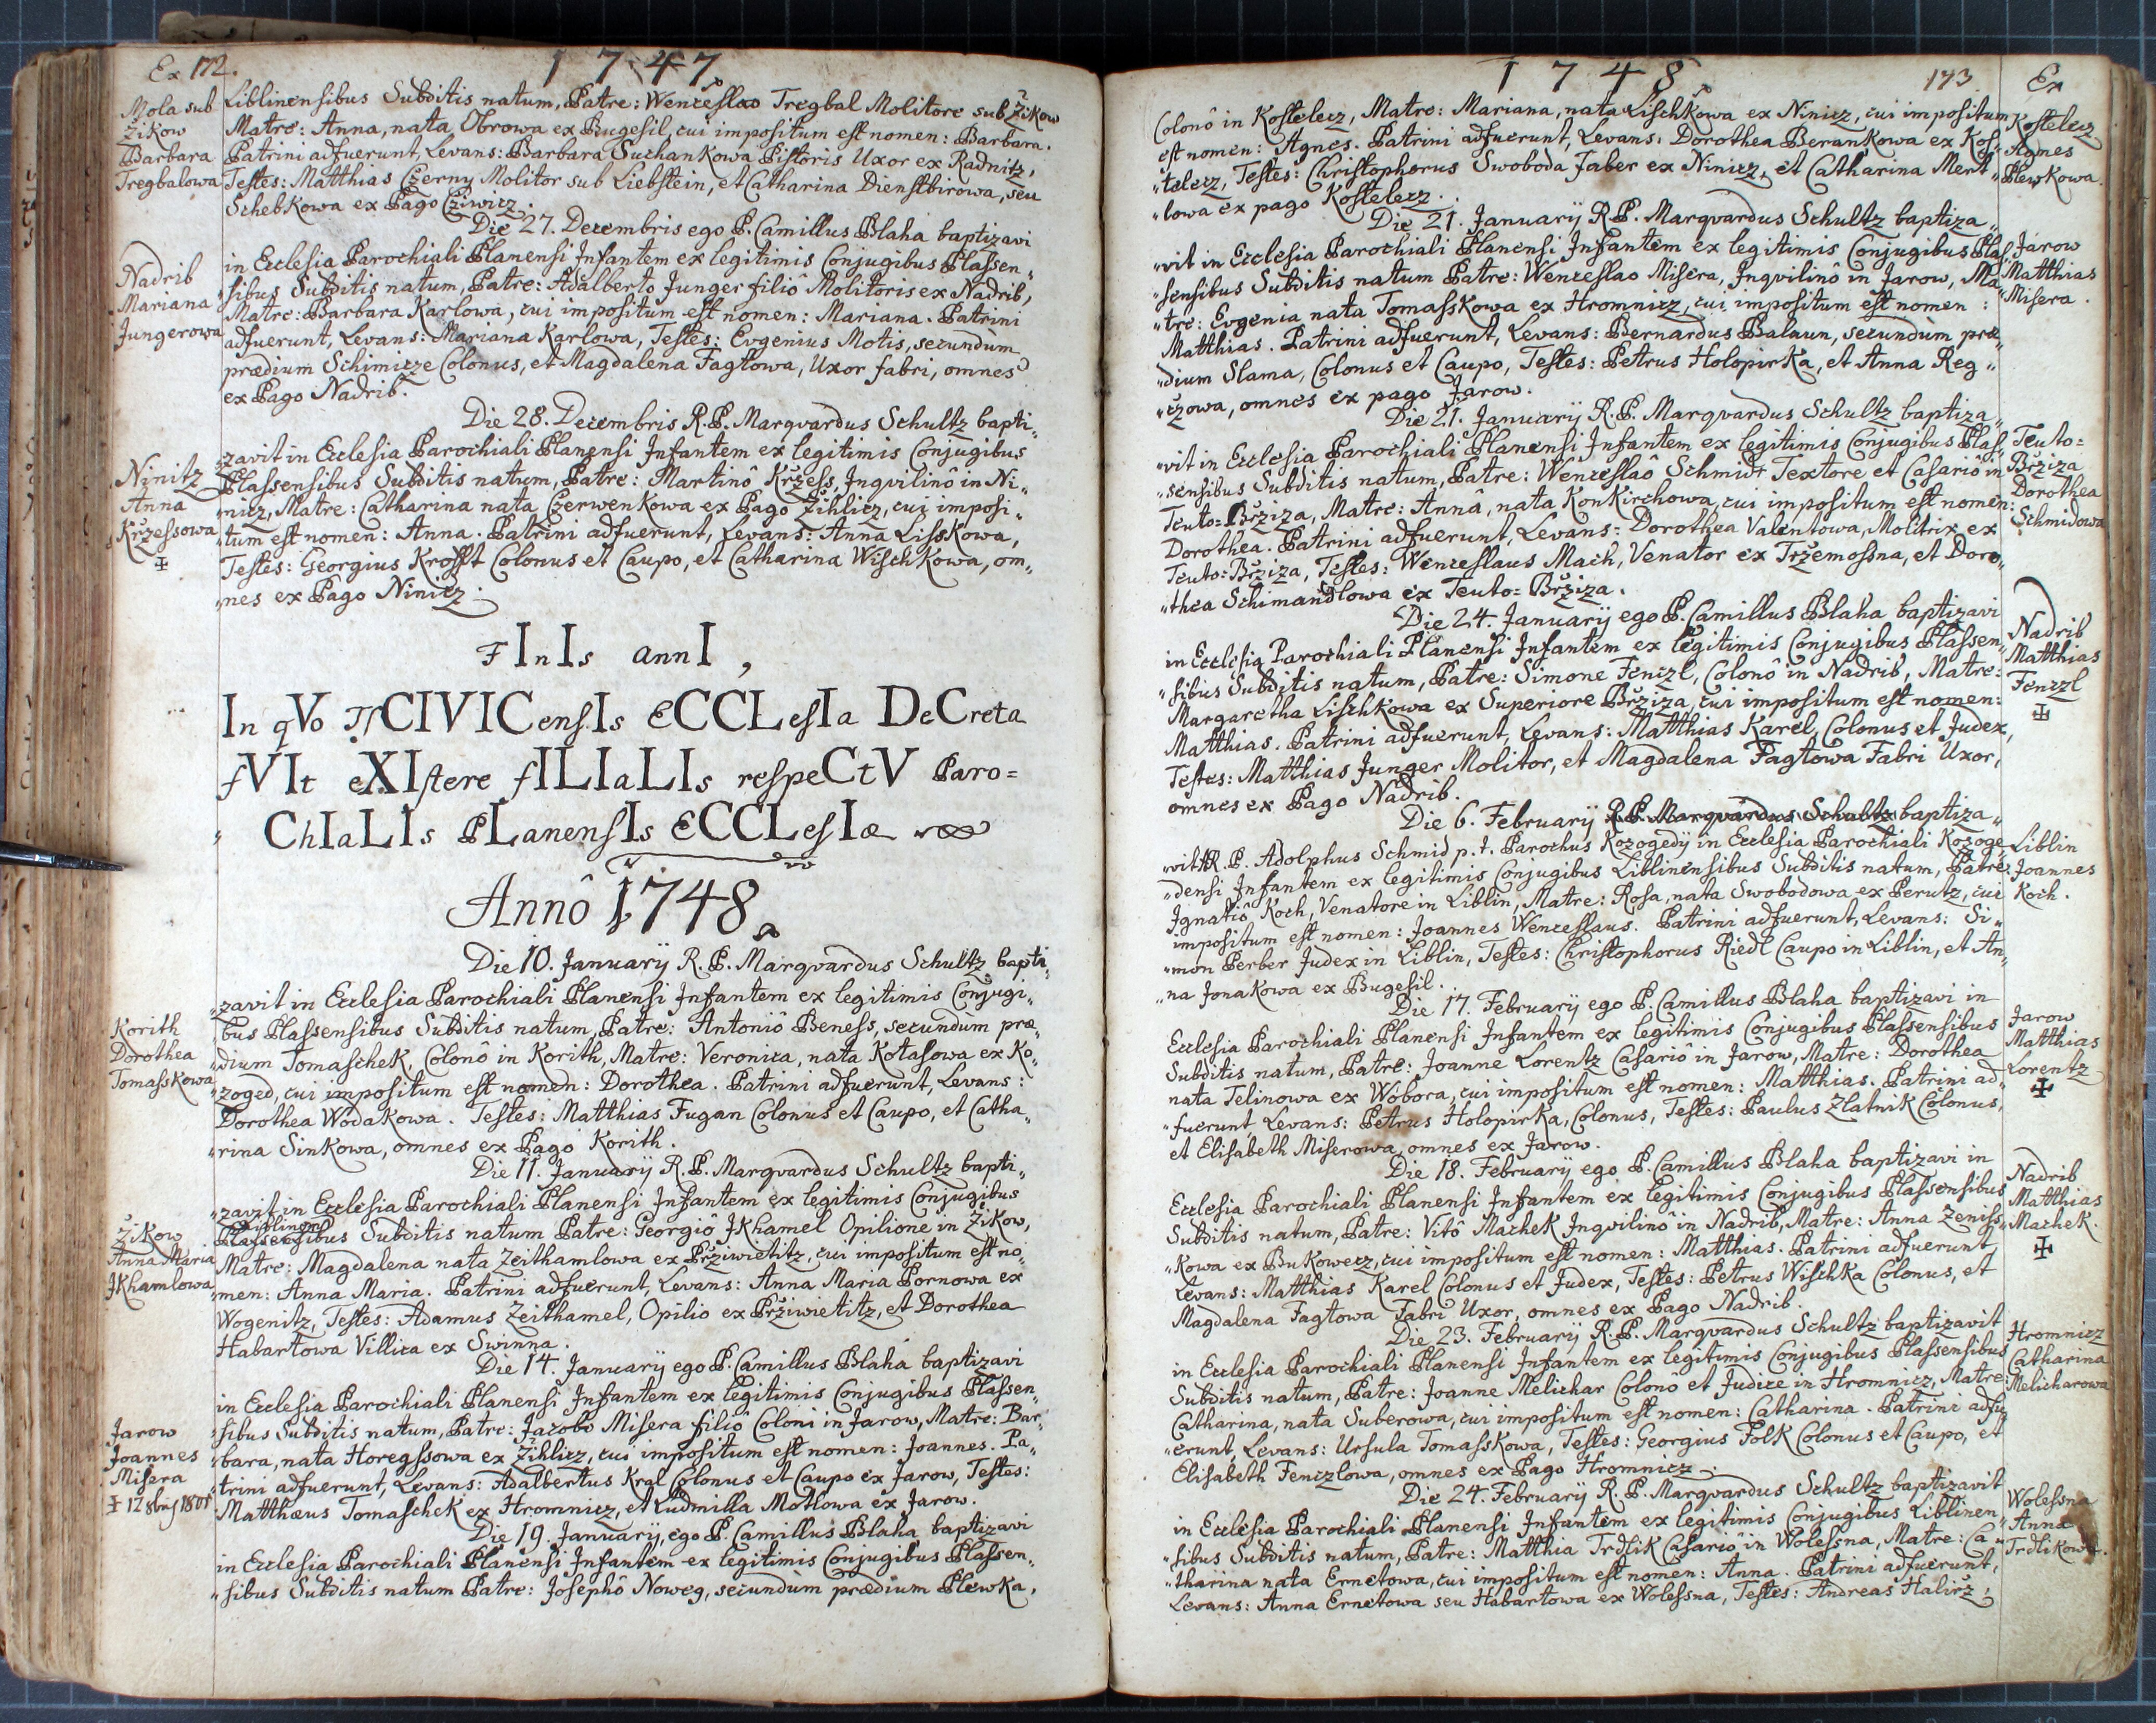 Ex 172.
1747
Mola sub
Žikow
Barbara
Tregbalowa
Liblinensibus Subditis natum, Patre: Wenceslao Tregbal Molitore sub Žikow
Matre: Anna, nata Obrowa ex Bugesil, cui impositum est nomen: Barbara.
Patrini adfuerunt, Levans: Barbara Suchankowa Pistoris Uxor ex Radnitz,
Testes: Matthias Czerny Molitor sub Liebstein, et Catharina Dienstbirowa, seu
Schebkowa ex Pago Cziwicz.
Die 27. Decembris ego P. Camillus Blaha baptizavi
Nadrib
Mariana
Jungerowa
in Ecclesia Parochiali Planensi Infantem ex legitimis Conjugibus Plassen„
„sibus Subditis natum, Patre: Adalberto Junger filiô Molitoris ex Nadrib,
Matre: Barbara Karlowa, cui impositum est nomen: Mariana. Patrini
adfuerunt, Levans: Mariana Karlowa, Testes: Evgenius Motis, secundum
prædium Schimicze Colonus, et Magdalena Fagtowa, Uxor fabri, omnes
ex Pago Nadrib.
Die 28. Decembris R.P. Marqvardus Schultz bapti„
Ninitz
Anna
Kržessowa
✠
„zavit in Ecclesia Parochiali Planensi Infantem ex legitimis Conjugibus
Plassensibus Subditis natum, Patre: Martinô Kržess, Inqvilinô in Ni„
„nicz, Matre: Catharina nata Czerwenkowa ex Pago Žihlicz, cui imposi„
„tum est nomen: Anna. Patrini adfuerunt, Levans: Anna Lisskowa,
Testes: Georgius Krofft Colonus et Caupo, et Catharina Wischkowa, om„
„nes ex Pago Ninicz.
FInIs annI,
In qVo CIVICensIs ECCLesIa DeCreta
fVIt eXIstere fILIaLIs respeCtV Paro=
ChIaLIs PLanensIs ECCLesIæ
Annô 1748
Die 10. Januarij R.P. Marqvardus Schultz bapti„
Korith
Dorothea
Tomasskowa
„zavit in Ecclesia Parochiali Planensi Infantem ex legitimis Conjugi„
„bus Plassensibus Subditis natum, Patre: Antoniô Beness, secundum præ„
„dium Tomaschek, Colonô in Korith, Matre: Veronica, nata Kotasowa ex Ko„
„zoged, cui impositum est nomen: Dorothea. Patrini adfuerunt, Levans:
Dorothea Wodakowa. Testes: Matthias Fugan Colonus et Caupo, et Catha„
„rina Sinkowa, omnes ex Pago Korith.
Die 11. Januarij R.P. Marqvardus Schultz bapti„
Žikow
Anna Maria
Jkhamlowa
„zavit in Ecclesia Parochiali Planensi Infantem ex legitimis Conjugibus
Liblinen
Plassensibus Subditis natum Patre: Georgio Jkhamel Opilione in Žikow,
Matre: Magdalena nata Zeithamlowa ex Pržiwietitz, cui impositum est no„
„men: Anna Maria. Patrini adfuerunt, Levans: Anna Maria Pornowa ex
Wogenitz, Testes: Adamus Zeithamel, Opilio ex Pržiwietitz, et Dorothea
Habartowa Villica ex Swinna.
Die 14. Januarij ego P. Camillus Blaha baptizavi
Jarow
Joannes
Misera
✠ 12 8bris 1801
in Ecclesia Parochiali Planensi Infantem ex legitimis Conjugibus Plassen„
„sibus Subditis natum, Patre: Jacobo Misera filiô Coloni in Jarow, Matre: Bar„
„bara, nata Horegssowa ex Žihlicz, cui impositum est nomen: Joannes. Pa„
„trini adfuerunt, Levans: Adalbertus Kral Colonus et Caupo ex Jarow, Testes:
Matthæus Tomaschek ex Hromnicz, et Ludmilla Motlowa ex Jarow.
Die 19. Januarij, ego P. Camillus Blaha baptizavi
in Ecclesia Parochiali Planensi Infantem ex legitimis Conjugibus Plassen„
„sibus Subditis natum Patre: Josephô Noweg, secundum prædium Plewka,
1748
173
Ex
Kostelecz
Agnes
Plewkowa.
Colonô in Kostelecz, Matre: Mariana, nata Lischkowa ex Ninicz, cui impositum
est nomen: Agnes. Patrini adfuerunt, Levans: Dorothea Berankowa ex Kos„
„telecz, Testes: Christophorus Swoboda Faber ex Ninicz, et Catharina Mert„
„lowa ex pago Kostelecz.
Die 21. Januarij R.P. Marqvardus Schultz baptiza„
Jarow
Matthias
Misera.
„vit in Ecclesia Parochiali Planensi Infantem ex legitimis Conjugibus Plas„
„sensibus Subditis natum Patre: Wenceslao Misera, Inqvilinô in Jarow, Ma„
„tre: Evgenia nata Tomasskowa ex Hromnicz, cui impositum est nomen:
Matthias. Patrini adfuerunt, Levans: Bernardus Balaun, secundum præ„
„dium Slama, Colonus et Caupo, Testes: Petrus Holopirka, et Anna Reg„
„czowa, omnes ex pago Jarow.
Die 21. Januarij R.P. Marqvardus Schultz baptiza„
Teuto=
Bržiza
Dorothea
Schmidowa
„vit in Ecclesia Parochiali Planensi Infantem ex legitimis Conjugibus Plas„
„sensibus Subditis natum, Patre: Wenceslaô Schmidt Textore et Casariô in
Teuto=Bržiza, Matre: Annâ, nata Konkirchowa, cui impositum est nomen:
Dorothea. Patrini adfuerunt, Levans: Dorothea Valentowa, Molitrix ex
Teuto=Bržiza, Testes: Wenceslaus Mach, Venator ex Tržemossna, et Doro„
„thea Schimandlowa ex Teuto=Bržiza.
Die 24. Januarij ego P. Camillus Blaha baptizavi
Nadrib
Matthias
Fenczl
✠
in Ecclesia Parochiali Planensi Infantem ex legitimis Conjugibus Plassen„
„sibus Subditis natum, Patre: Simone Fenczl, Colonô in Nadrib, Matre:
Margaretha Lischkowa ex Superiore Bržiza, cui impositum est nomen:
Matthias. Patrini adfuerunt, Levans: Matthias Karel, Colonus et Judex,
Testes: Matthias Junger Molitor, et Magdalena Fagtowa Fabri Uxor,
omnes ex Pago Nadrib.
Die 6. Februarij R.P. Marqvardus Schultz baptiza„
Liblin
Joannes
Koch.
„vit A.R.P. Adolphus Schmid p.t. Parochus Kozogedij in Ecclesia Parochiali Kozoge„
„densi Infantem ex legitimis Conjugibus Liblinensibus Subditis natum, Patre:
Ignatio Koch, Venatore in Liblin, Matre: Rosa, nata Swobodowa ex Perutz, cui
impositum est nomen: Joannes Wenceslaus. Patrini adfuerunt, Levans: Si„
„mon Perber Judex in Liblin, Testes: Christophorus Riedl Caupo in Liblin, et An„
„na Jonakowa ex Bugesil.
Die 17. Februarij ego P. Camillus Blaha baptizavi in
Jarow
Matthias
Lorentz
✠
Ecclesia Parochiali Planensi Infantem ex legitimis Conjugibus Plassensibus
Subditis natum, Patre: Joanne Lorentz Casariô in Jarow, Matre: Dorothea
nata Telinowa ex Wobora, cui impositum est nomen: Matthias. Patrini ad„
„fuerunt Levans: Petrus Holopirka, Colonus, Testes: Paulus Zlatnik Colonus,
et Elisabeth Miserowa, omnes ex Jarow.
Die 18. Februarij ego P. Camillus Blaha baptizavi in
Nadrib
Matthias
Machek.
✠
Ecclesia Parochiali Planensi Infantem ex legitimis Conjugibus Plassensibus
Subditis natum, Patre: Vitô Machek Inqvilinô in Nadrib, Matre: Anna Zeniss„
„kowa ex Bukowecz, cui impositum est nomen: Matthias. Patrini adfuerunt,
Levans: Matthias Karel Colonus et Judex, Testes: Petrus Wischka Colonus, et
Magdalena Fagtowa Fabri Uxor, omnes ex Pago Nadrib.
Die 23. Februarij R.P. Marqvardus Schultz baptizavit
Hromnicz
Catharina
Melicharowa
in Ecclesia Parochiali Planensi Infantem ex legitimis Conjugibus Plassensibus
Subditis natum, Patre: Joanne Melichar Colonô et Judice in Hromnicz, Matre:
Catharina, nata Suberowa, cui impositum est nomen: Catharina. Patrini adfu„
„erunt, Levans: Ursula Tomasskowa, Testes: Georgius Folk Colonus et Caupo, et
Elisabeth Fenczlowa, omnes ex Pago Hromnicz.
Die 24. Februarij R.P. Marqvardus Schultz baptizavit
Wolessna
Anna
Trdlikowa.
in Ecclesia Parochiali Planensi Infantem ex legitimis Conjugibus Liblinen„
„sibus Subditis natum, Patre: Matthia Trdlik Casario in Wolessna, Matre: Ca„
„tharina nata Ernetowa, cui impositum est nomen: Anna. Patrini adfuerunt,
Levans: Anna Ernetowa seu Habartowa ex Wolessna, Testes: Andreas Halirž,